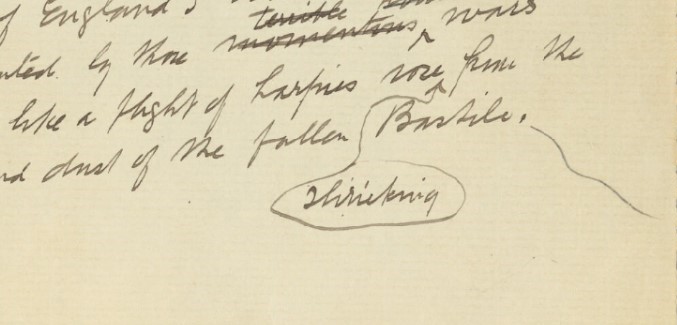 of England's
terrible
by those momentous wars
like a flight of harpies rose from the
dust of the fallen Bastile.
shrieking